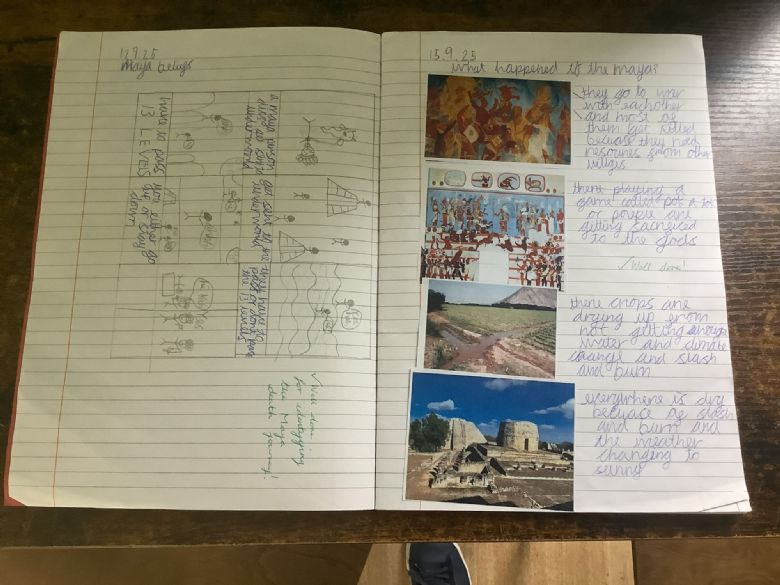 12.9.25
Maya beliefs
a maya person
dies and goes
underworld
get sent to the
underworld
they have to
the 13 levels
have to pass
13 LEVELS
you either go
up or stay
down
✓ Well done
for identifying
the Maya
death journey!
15.9.25
What happened to the maya?
they go to war
with eachother
and most of
them get killed
because they need
resources from other
villiges
there playing a
game called pok a tok
or people are
getting sacrificed
to the gods
✓ Well done!
there crops are
drying up from
not getting enough
water and climate
change and slash
and burn
everywhere is dry
becuace of slash
and burn and
the weather
changing to
sunny